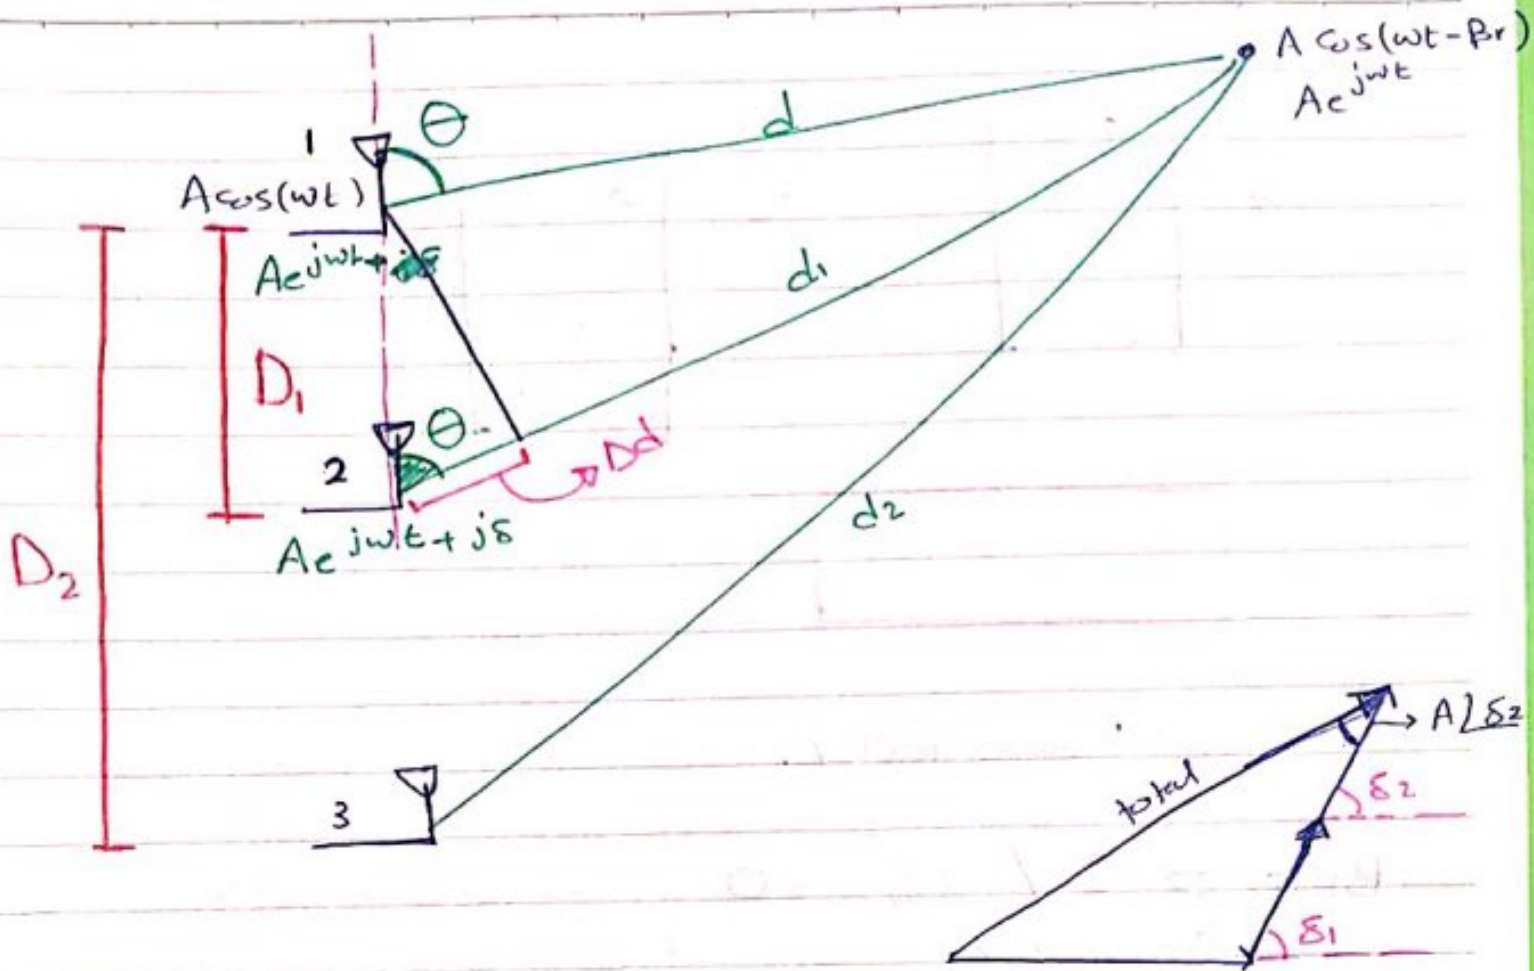 A cos(ωt - βr)
Ae^jωt
1
θ
d
A cos(ωt)
Ae^jωt+
D₁
d₁
2
θ
Dd
Ae^jωt + jδ
D₂
d₂
3
total
A∠δ2
δ2
δ1